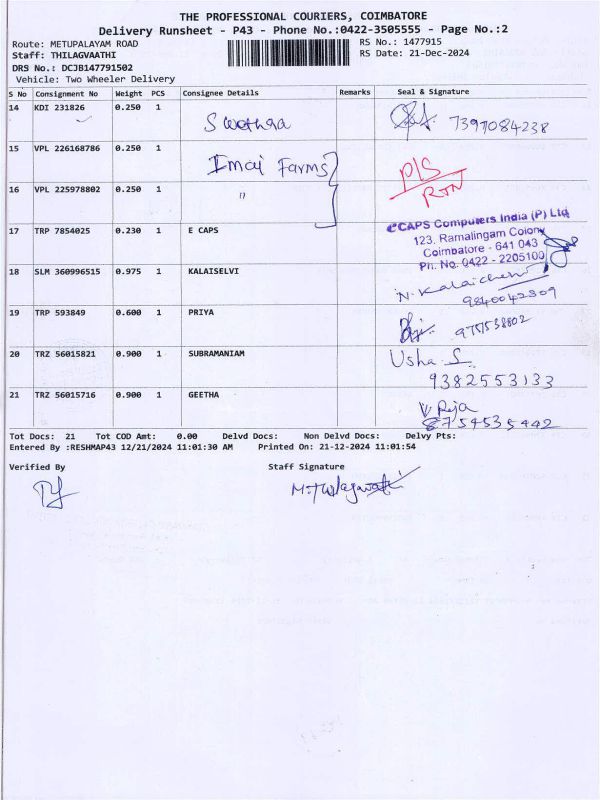 THE PROFESSIONAL COURIERS, COIMBATORE
Delivery Runsheet - P43 - Phone No.:0422-3505555 - Page No.:2
Route: METUPALAYAM ROAD
RS No.: 1477915
Staff: THILAGVAATHI
RS Date: 21-Dec-2024
DRS No.: DCJB147791502
Vehicle: Two Wheeler Delivery
S No Consignment No Weight PCS Consignee Details Remarks Seal & Signature
14 KDI 231826 0.250 1 Swathra 7397084238
15 VPL 226168786 0.250 1 Imai Farms P/S
16 VPL 225978802 0.250 1 " RTN
17 TRP 7854025 0.230 1 E CAPS
eCAPS Computers India (P) Ltd
123, Ramalingam Colony
Coimbatore - 641 043
Ph. No. 0422 - 2205100
18 SLM 360996515 0.975 1 KALAISELVI N. Kalaichelvi
9840042309
19 TRP 593849 0.600 1 PRIYA
20 TRZ 56015821 0.900 1 SUBRAMANIAM Usha S
9382553133
21 TRZ 56015716 0.900 1 GEETHA V. Reja
8754535442
Tot Docs: 21 Tot COD Amt: 0.00 Delvd Docs: Non Delvd Docs: Delvy Pts:
Entered By :RESHMAP43 12/21/2024 11:01:30 AM Printed On: 21-12-2024 11:01:54
Verified By Staff Signature